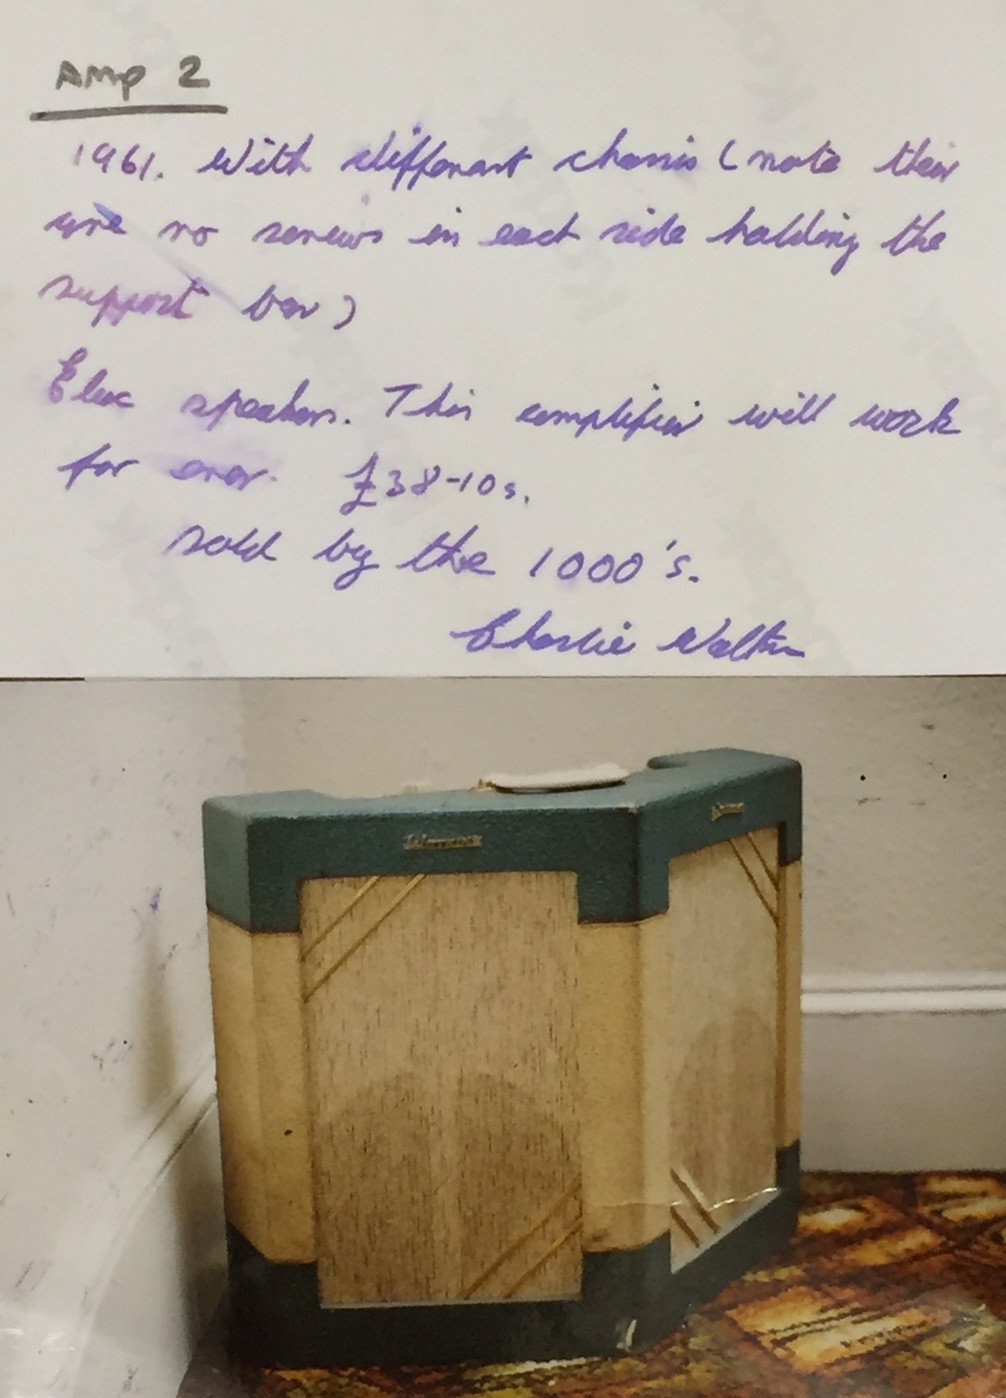 Amp 2
1961. With differant chassis (note thier
are no screws in each side holding the
support bar)
Elac speakers. This amplifier will work
for ever. £38-10s.
sold by the 1000's.
Charlie Watkins
Watkins